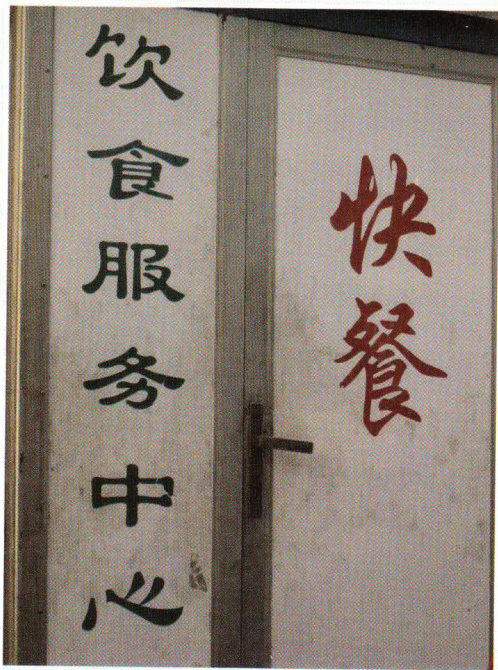 饮食服务中心
快餐